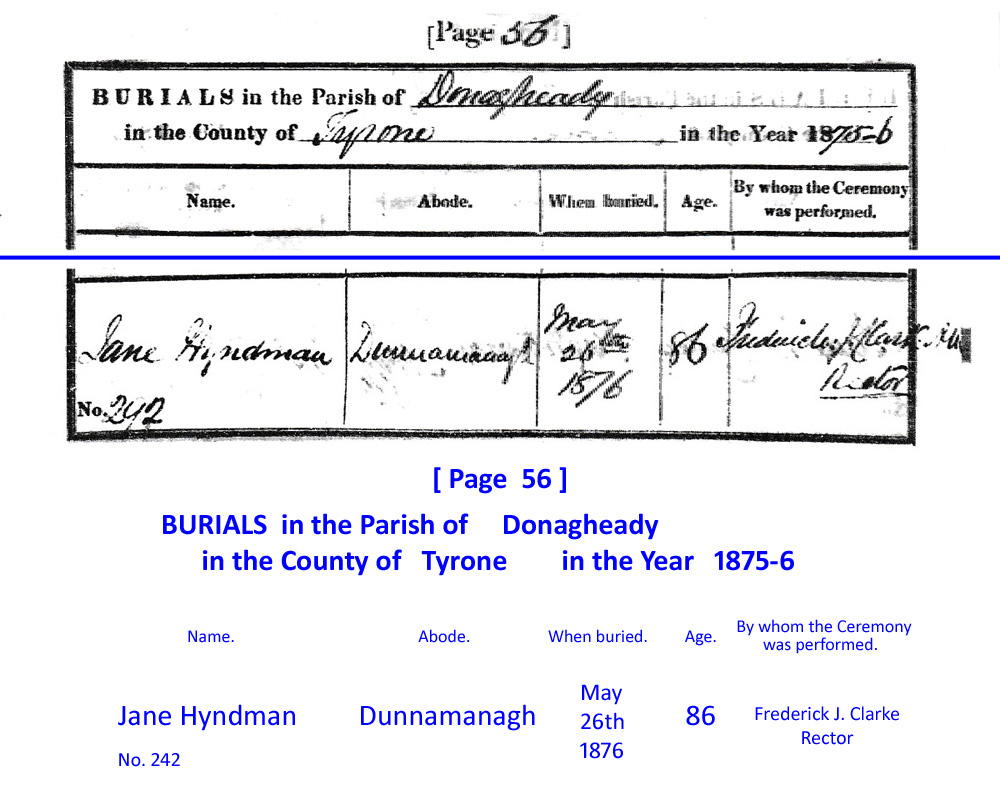 [Page 56]
BURIALS in the Parish of Donagheady
in the County of Tyrone in the Year 1875-6
Name. Abode. When buried. Age. By whom the Ceremony was performed.
Jane Hyndman Dunnamanagh May 26th 1876 86 Frederick J. Clarke
Rector
No. 242
[ Page 56 ]
BURIALS in the Parish of Donagheady
in the County of Tyrone in the Year 1875-6
Name. Abode. When buried. Age. By whom the Ceremony was performed.
Jane Hyndman Dunnamanagh May 26th 1876 86 Frederick J. Clarke
Rector
No. 242